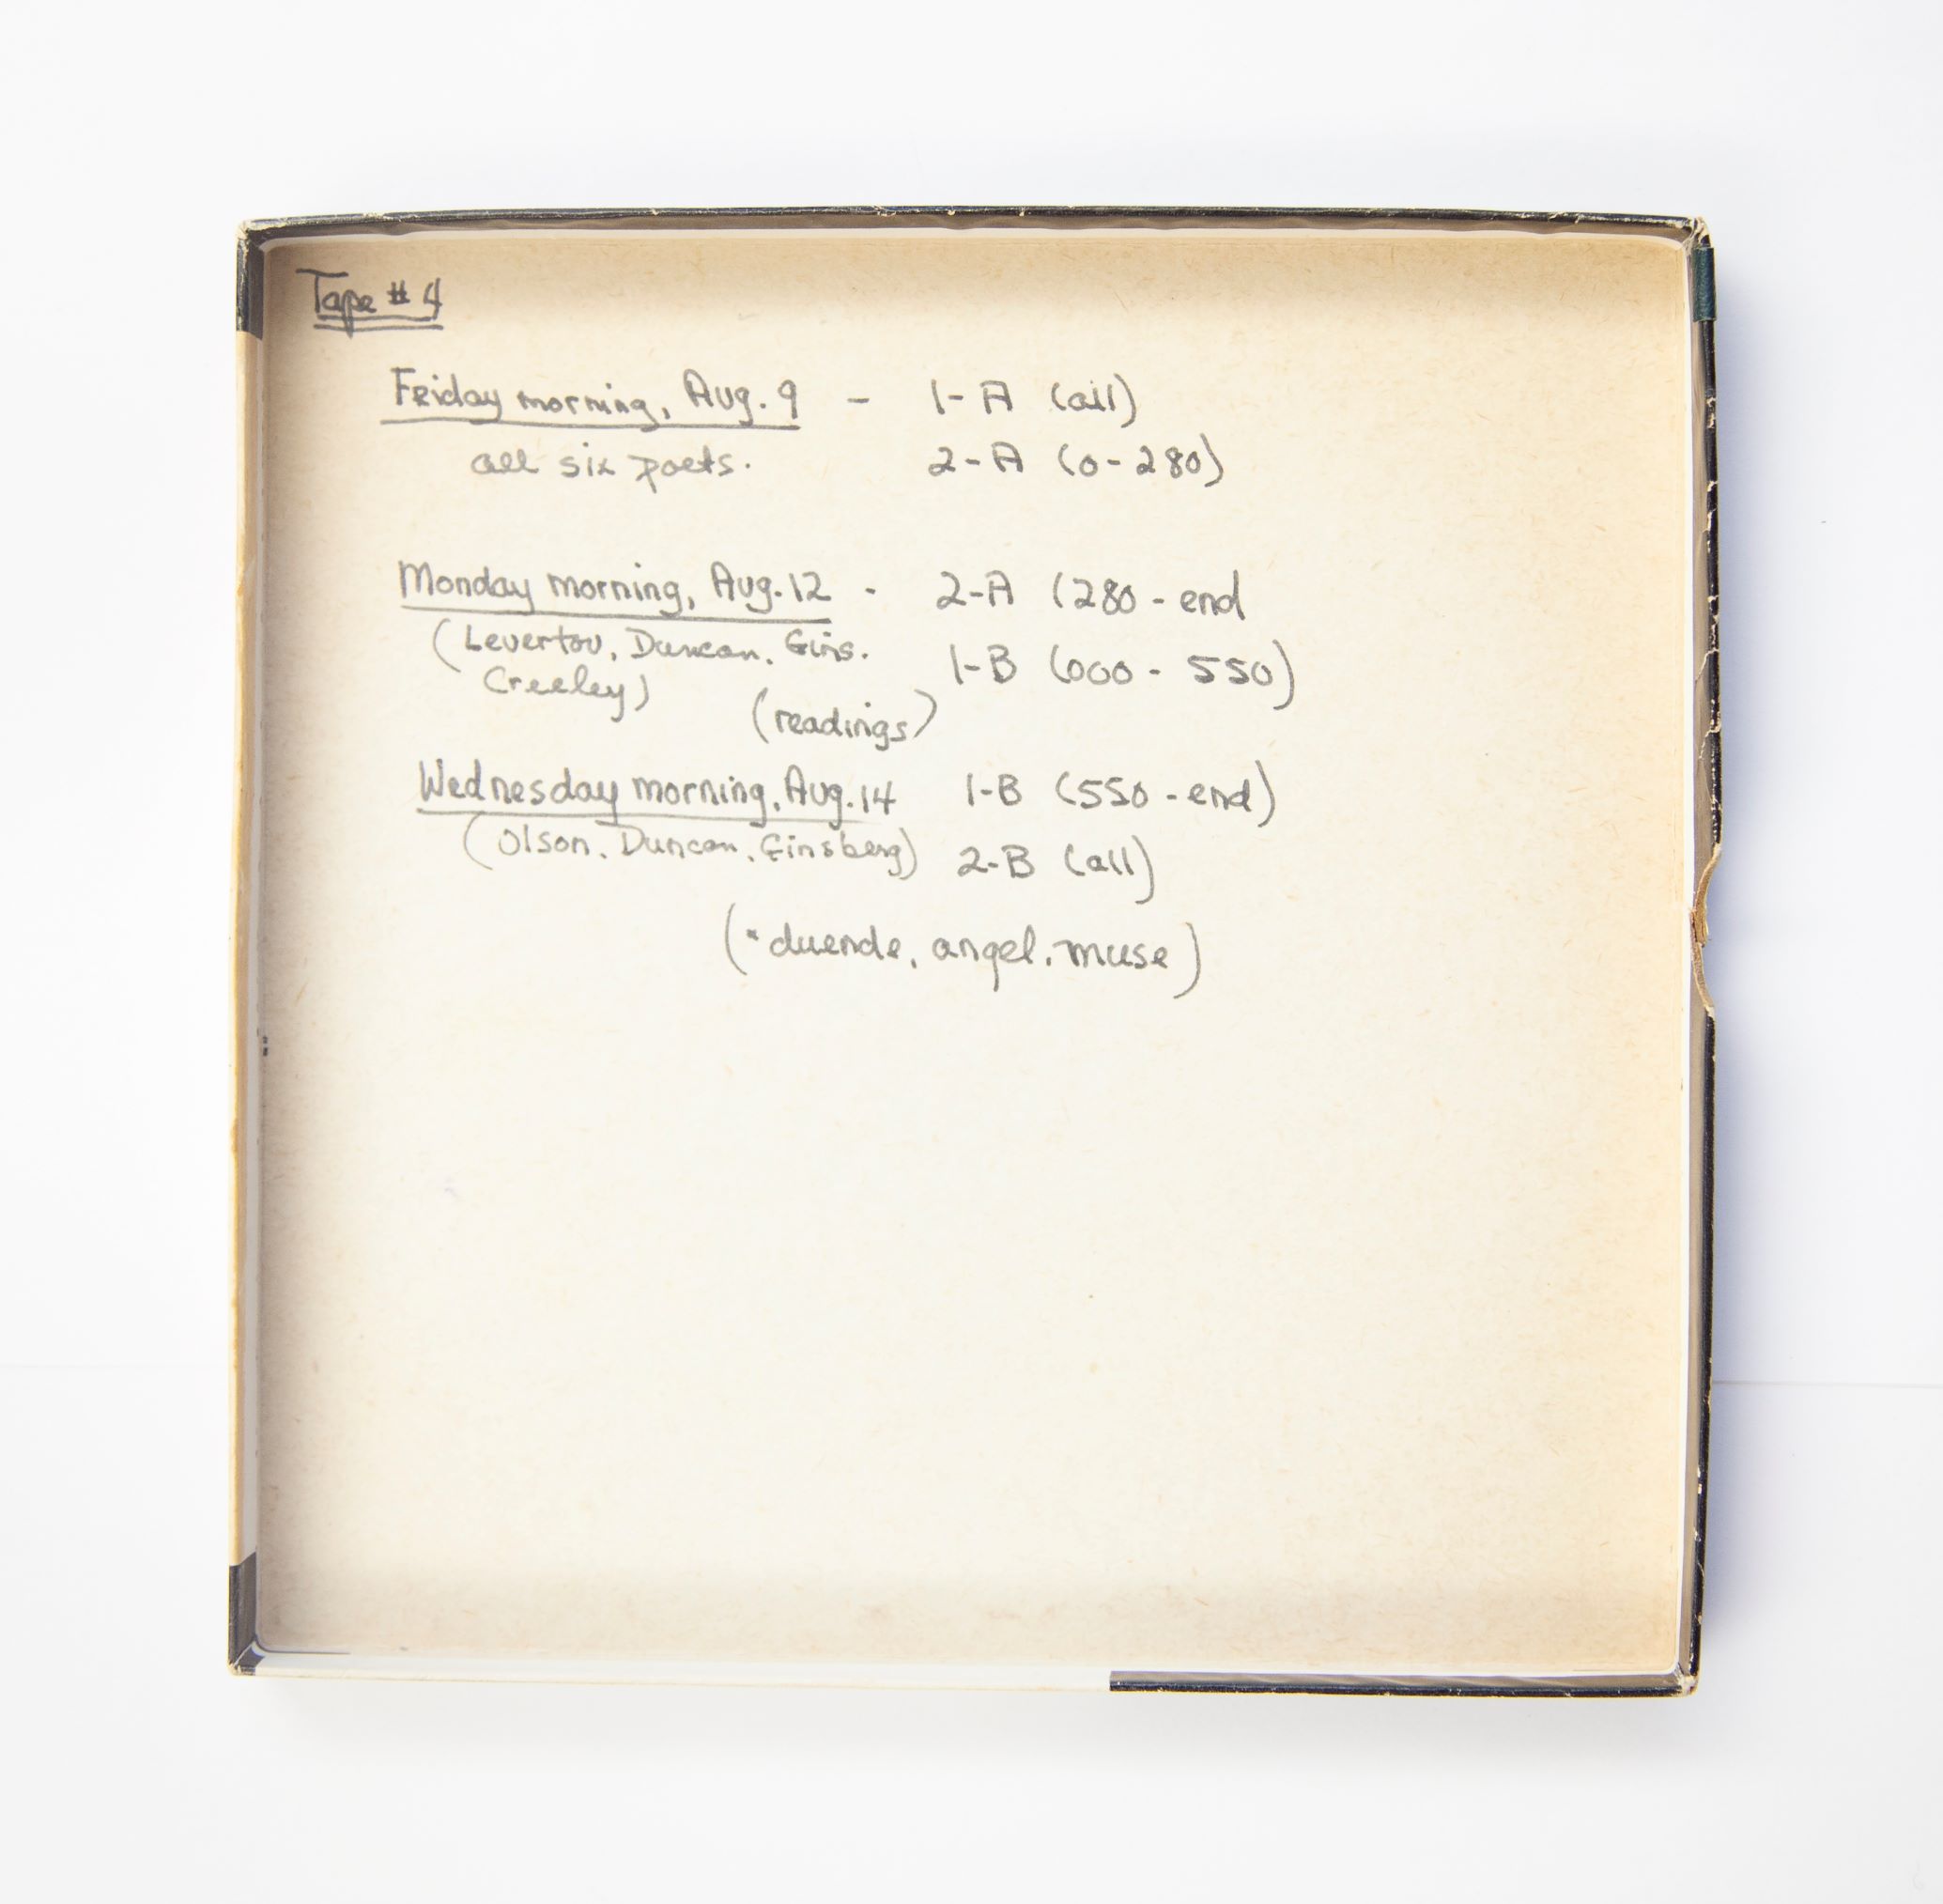 Tape # 4
Friday morning, Aug. 9 - 1-A (all)
all six poets. 2-A (0-280)
Monday morning, Aug. 12 - 2-A (280 - end
(Levertov, Duncan, Gins. 1-B (000 - 550)
Creeley)
(readings)
Wednesday morning, Aug. 14 1-B (550 - end)
(Olson, Duncan, Ginsberg) 2-B (all)
("duende, angel, muse)